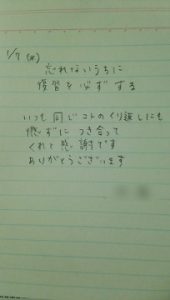 1/7 (水)
忘れないうちに
復習を必ずする
いつも同じコトのくり返しにも
懲ずにつき合って
くれて感謝です
ありがとうございます